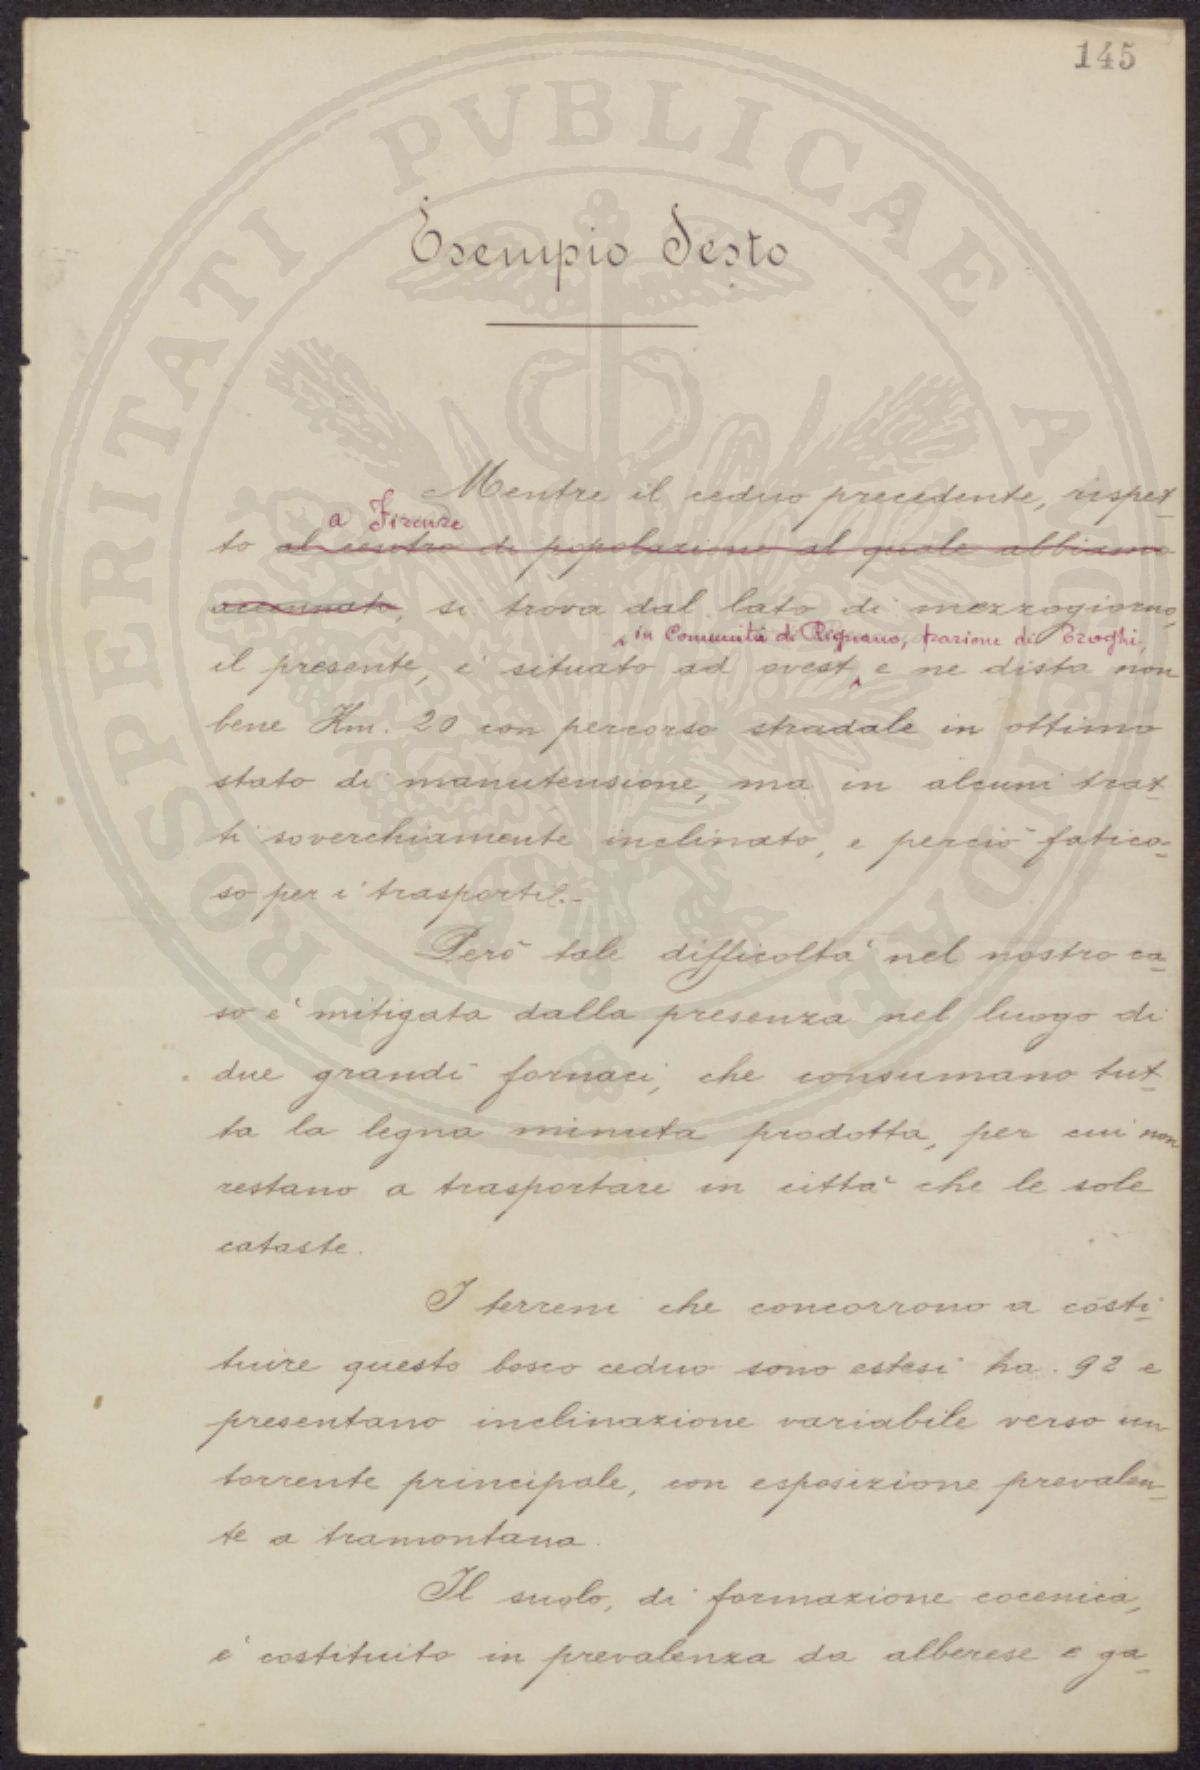 145
PROSPERITATI PVBLICAE AVGENDAE
Esempio Sesto
Mentre il ceduo precedente, rispet-
a Firenze
to al centro di popolazione al quale abbiamo
accennato, si trova dal lato di mezzogiorno,
in Comunità di Rignano, frazione di Troghi,
il presente, è situato ad ovest, e ne dista non
bene Km. 20 con percorso stradale in ottimo
stato di manutensione, ma in alcuni trat-
ti soverchiamente inclinato, e perciò fatico-
so per i trasporti.-
Però tale difficoltà nel nostro ca-
so è mitigata dalla presenza nel luogo di
due grandi fornaci, che consumano tut-
ta la legna minuta prodotta, per cui non
restano a trasportare in città che le sole
cataste.
I terreni che concorrono a costi-
tuire questo bosco ceduo sono estesi ha. 92 e
presentano inclinazione variabile verso un
torrente principale, con esposizione prevalen-
te a tramontana.
Il suolo, di formazione eocenica,
è costituito in prevalenza da alberese e ga-